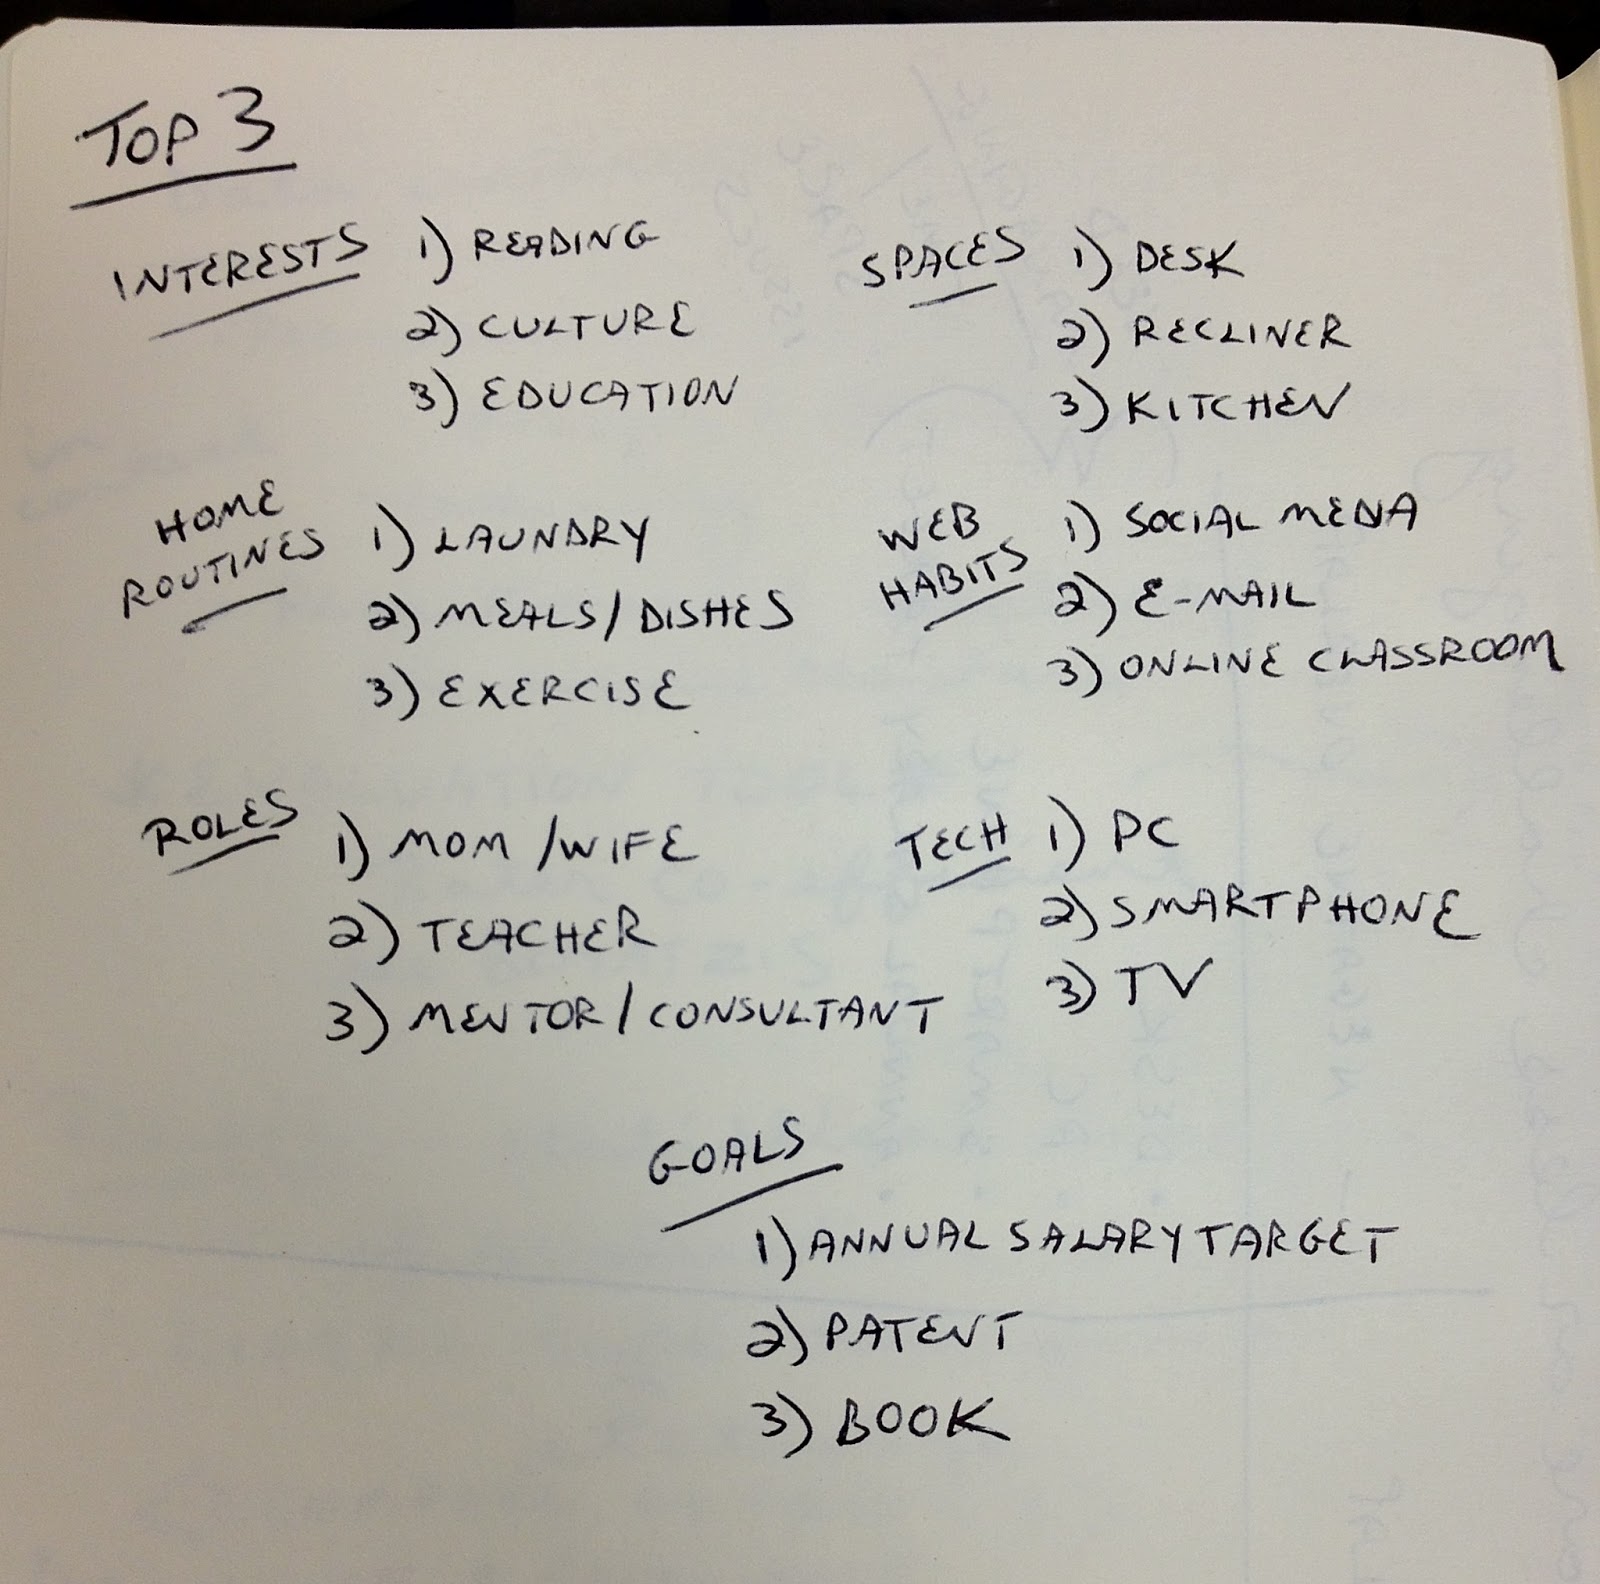 TOP 3
INTERESTS
1) READING
2) CULTURE
3) EDUCATION
SPACES
1) DESK
2) RECLINER
3) KITCHEN
HOME
ROUTINES
1) LAUNDRY
2) MEALS/DISHES
3) EXERCISE
WEB
HABITS
1) SOCIAL MEDIA
2) E-MAIL
3) ONLINE CLASSROOM
ROLES
1) MOM/WIFE
2) TEACHER
3) MENTOR/CONSULTANT
TECH
1) PC
2) SMARTPHONE
3) TV
GOALS
1) ANNUAL SALARY TARGET
2) PATENT
3) BOOK